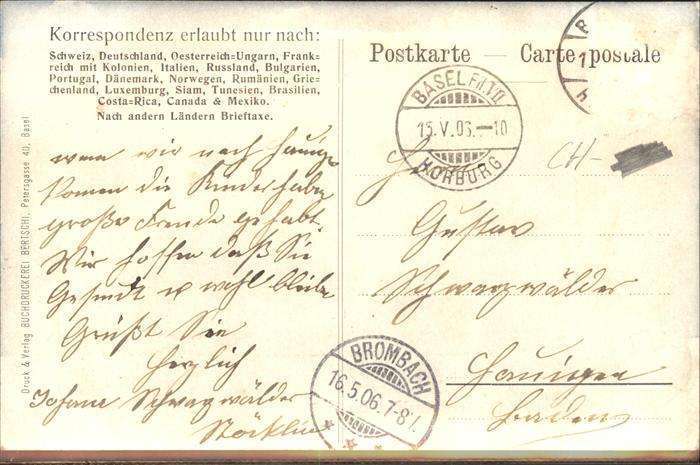 Korrespondenz erlaubt nur nach:
Schweiz, Deutschland, Oesterreich=Ungarn, Frank=
reich mit Kolonien, Italien, Russland, Bulgarien,
Portugal, Dänemark, Norwegen, Rumänien, Grie=
chenland, Luxemburg, Siam, Tunesien, Brasilien,
Costa=Rica, Canada & Mexiko.
Nach andern Ländern Brieftaxe.
wir nach
die Kinder habe
große Freude gehabt.
Wir hoffen daß Sie
Gesund u wohl
Grüßt Sie
herzlich
Schwarzwälder
Stöcklin
Druck & Verlag BUCHDRUCKEREI BERTSCHI, Petersgasse 40, Basel
Postkarte — Carte postale
BASEL Fil.
15.V.06.–10
HORBURG
CH-
Gustav
Schwarzwälder
Hauingen
Baden
BROMBACH
16.5.06.7-8V.